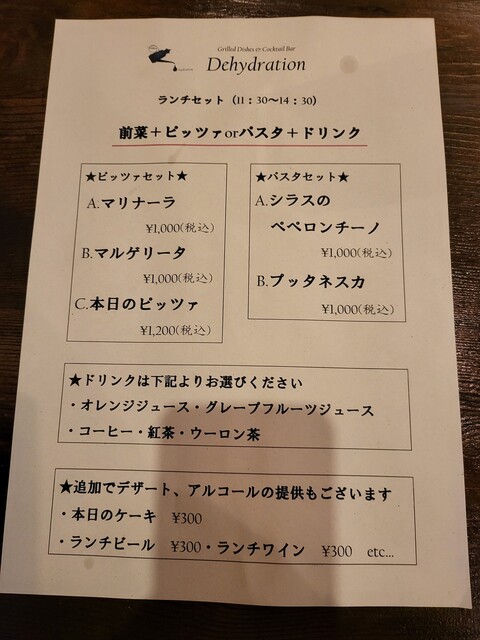 Grilled Dishes & Cocktail Bar
Dehydration
ランチセット（11：30〜14：30）
前菜＋ピッツァorパスタ＋ドリンク
★ピッツァセット★
A.マリナーラ
¥1,000(税込)
B.マルゲリータ
¥1,000(税込)
C.本日のピッツァ
¥1,200(税込)
★パスタセット★
A.シラスの
ペペロンチーノ
¥1,000(税込)
B.プッタネスカ
¥1,000(税込)
★ドリンクは下記よりお選びください
・オレンジジュース・グレープフルーツジュース
・コーヒー・紅茶・ウーロン茶
★追加でデザート、アルコールの提供もございます
・本日のケーキ　¥300
・ランチビール　¥300・ランチワイン　¥300　etc...